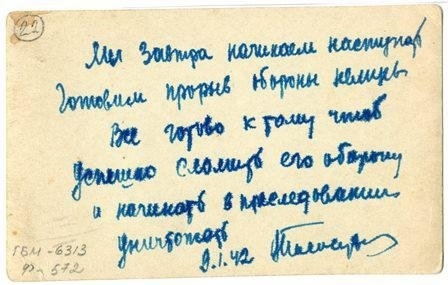 22
Мы завтра начинаем наступат
Готовим прорыв обороны
Все готово к тому чтоб
успешно сломить его оборону
и начинать в преследовании
уничтожать
9.1.42
ГБМ-6313
572